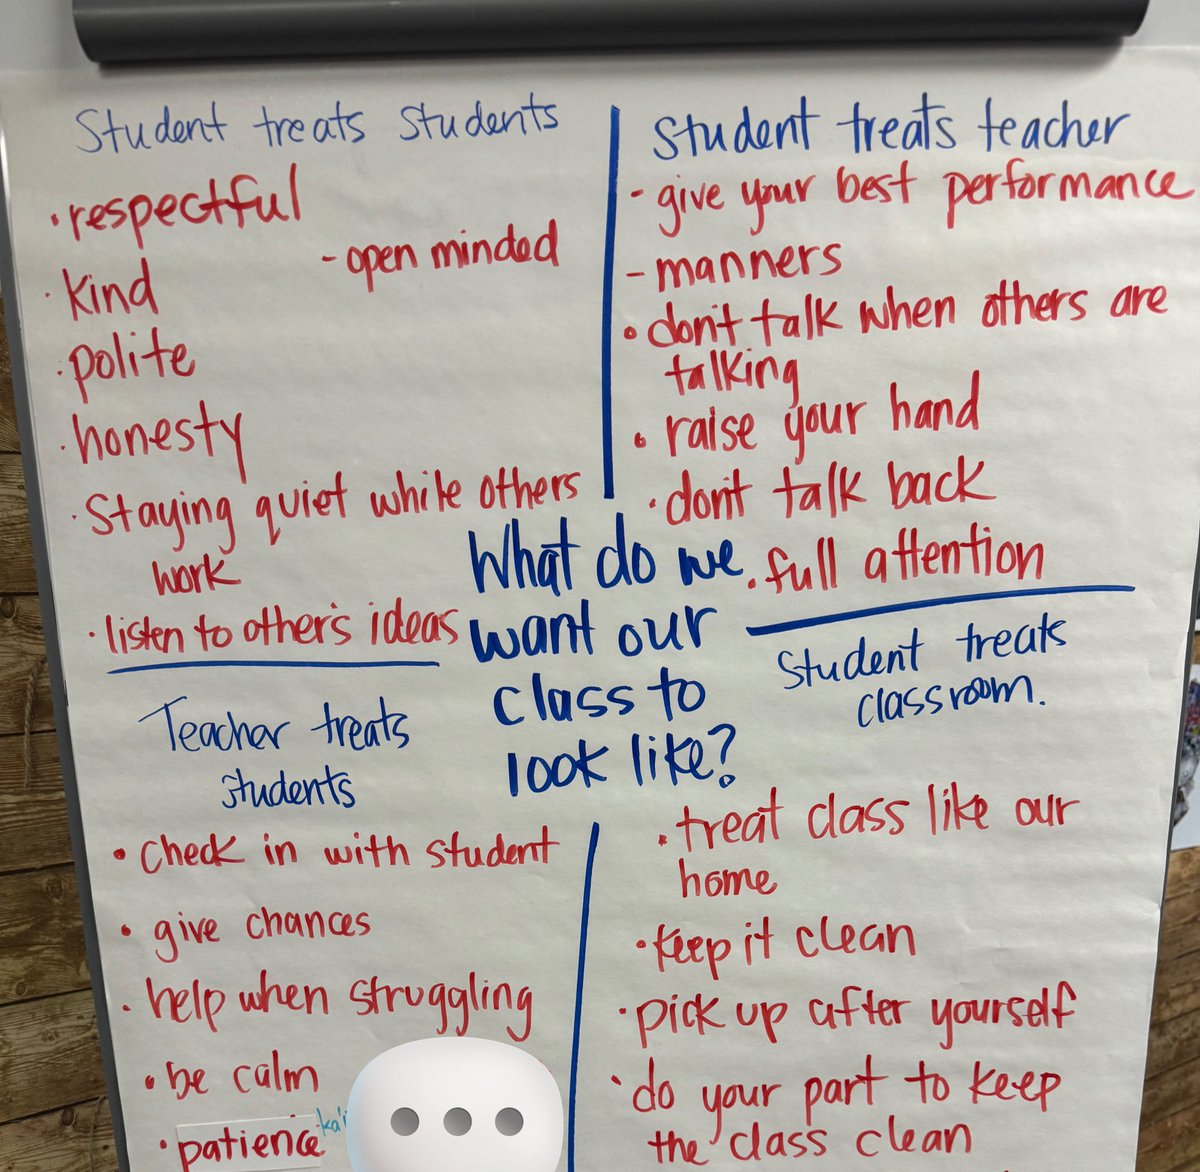 Student treats students
• respectful
- open minded
• kind
• polite
• honesty
• Staying quiet while others
work
• listen to other's ideas
Student treats teacher
- give your best performance
- manners
• don't talk when others are
talking
• raise your hand
• don't talk back
• full attention
What do we
want our
class to
look like?
Teacher treats
students
• check in with student
• give chances
• help when struggling
• be calm
• patience
Student treats
classroom.
• treat class like our
home
• keep it clean
• pick up after yourself
• do your part to keep
the class clean